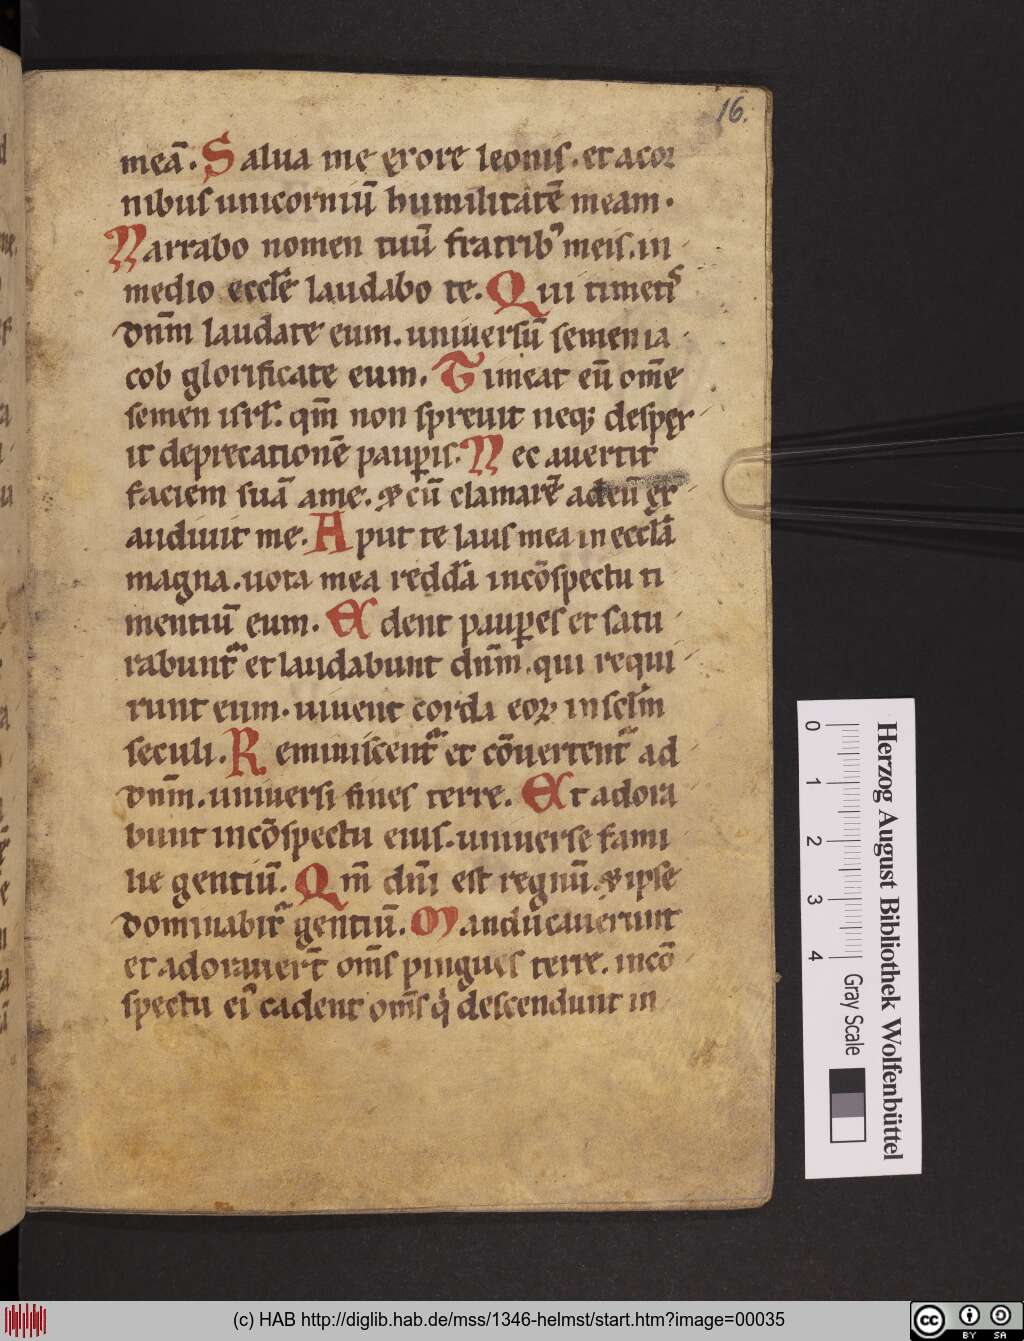 16.
meā. Salua me ęxore leonis. et acor
nibus unicorniū humilitatē meam.
Narrabo nomen tuū fratribꝰ meis. in
medio eccłe laudabo te. Qui timetis
dnm̄ laudate eum. uniuersū semen ia
cob glorificate eum. Timeat eū om̄e
semen isrł. qm̄ non spreuit neqꝫ despęx
it deprecationē pauꝑis. Nec auertit
faciem suā ame. ⁊ cū clamarē adeū ęx
audiuit me. Aput te laus mea in eccłā
magna. uota mea reddā incōspectu ti
mentiū eum. Edent pauꝑes et satu
rabunt᷑ et laudabunt dnm̄. qui requi
runt eum. uiuent corda eoꝝ in scłm
seculi. Reminiscent᷑ et cōuertent᷑ ad
dnm̄. uniuersi fines terre. Et adora
bunt incōspectu eius. uniuerse fami
lie gentiū. Qm̄ dn̄i est regnū. ⁊ ipse
dominabit᷑ gentiū. Manducauerunt
et adorauer̄t om̄s pingues terre. incō
spectu eiꝰ cadent om̄s q̇ descendunt in
0 1 2 3 4
Gray Scale
Herzog August Bibliothek Wolfenbüttel
(c) HAB http://diglib.hab.de/mss/1346-helmst/start.htm?image=00035
cc BY SA